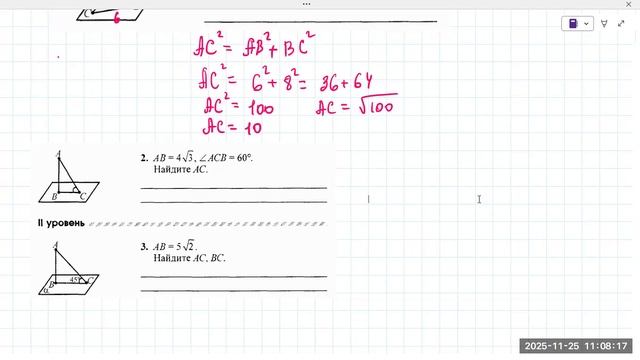 C 6
AC² = AB² + BC²
AC² = 6² + 8² = 36 + 64
AC² = 100 AC = √100
AC = 10
A
2. AB = 4√3, ∠ACB = 60°.
Найдите AC.
B C
II уровень
A
3. AB = 5√2.
Найдите AC, BC.
B 45° C
α
2025-11-25 11:08:17